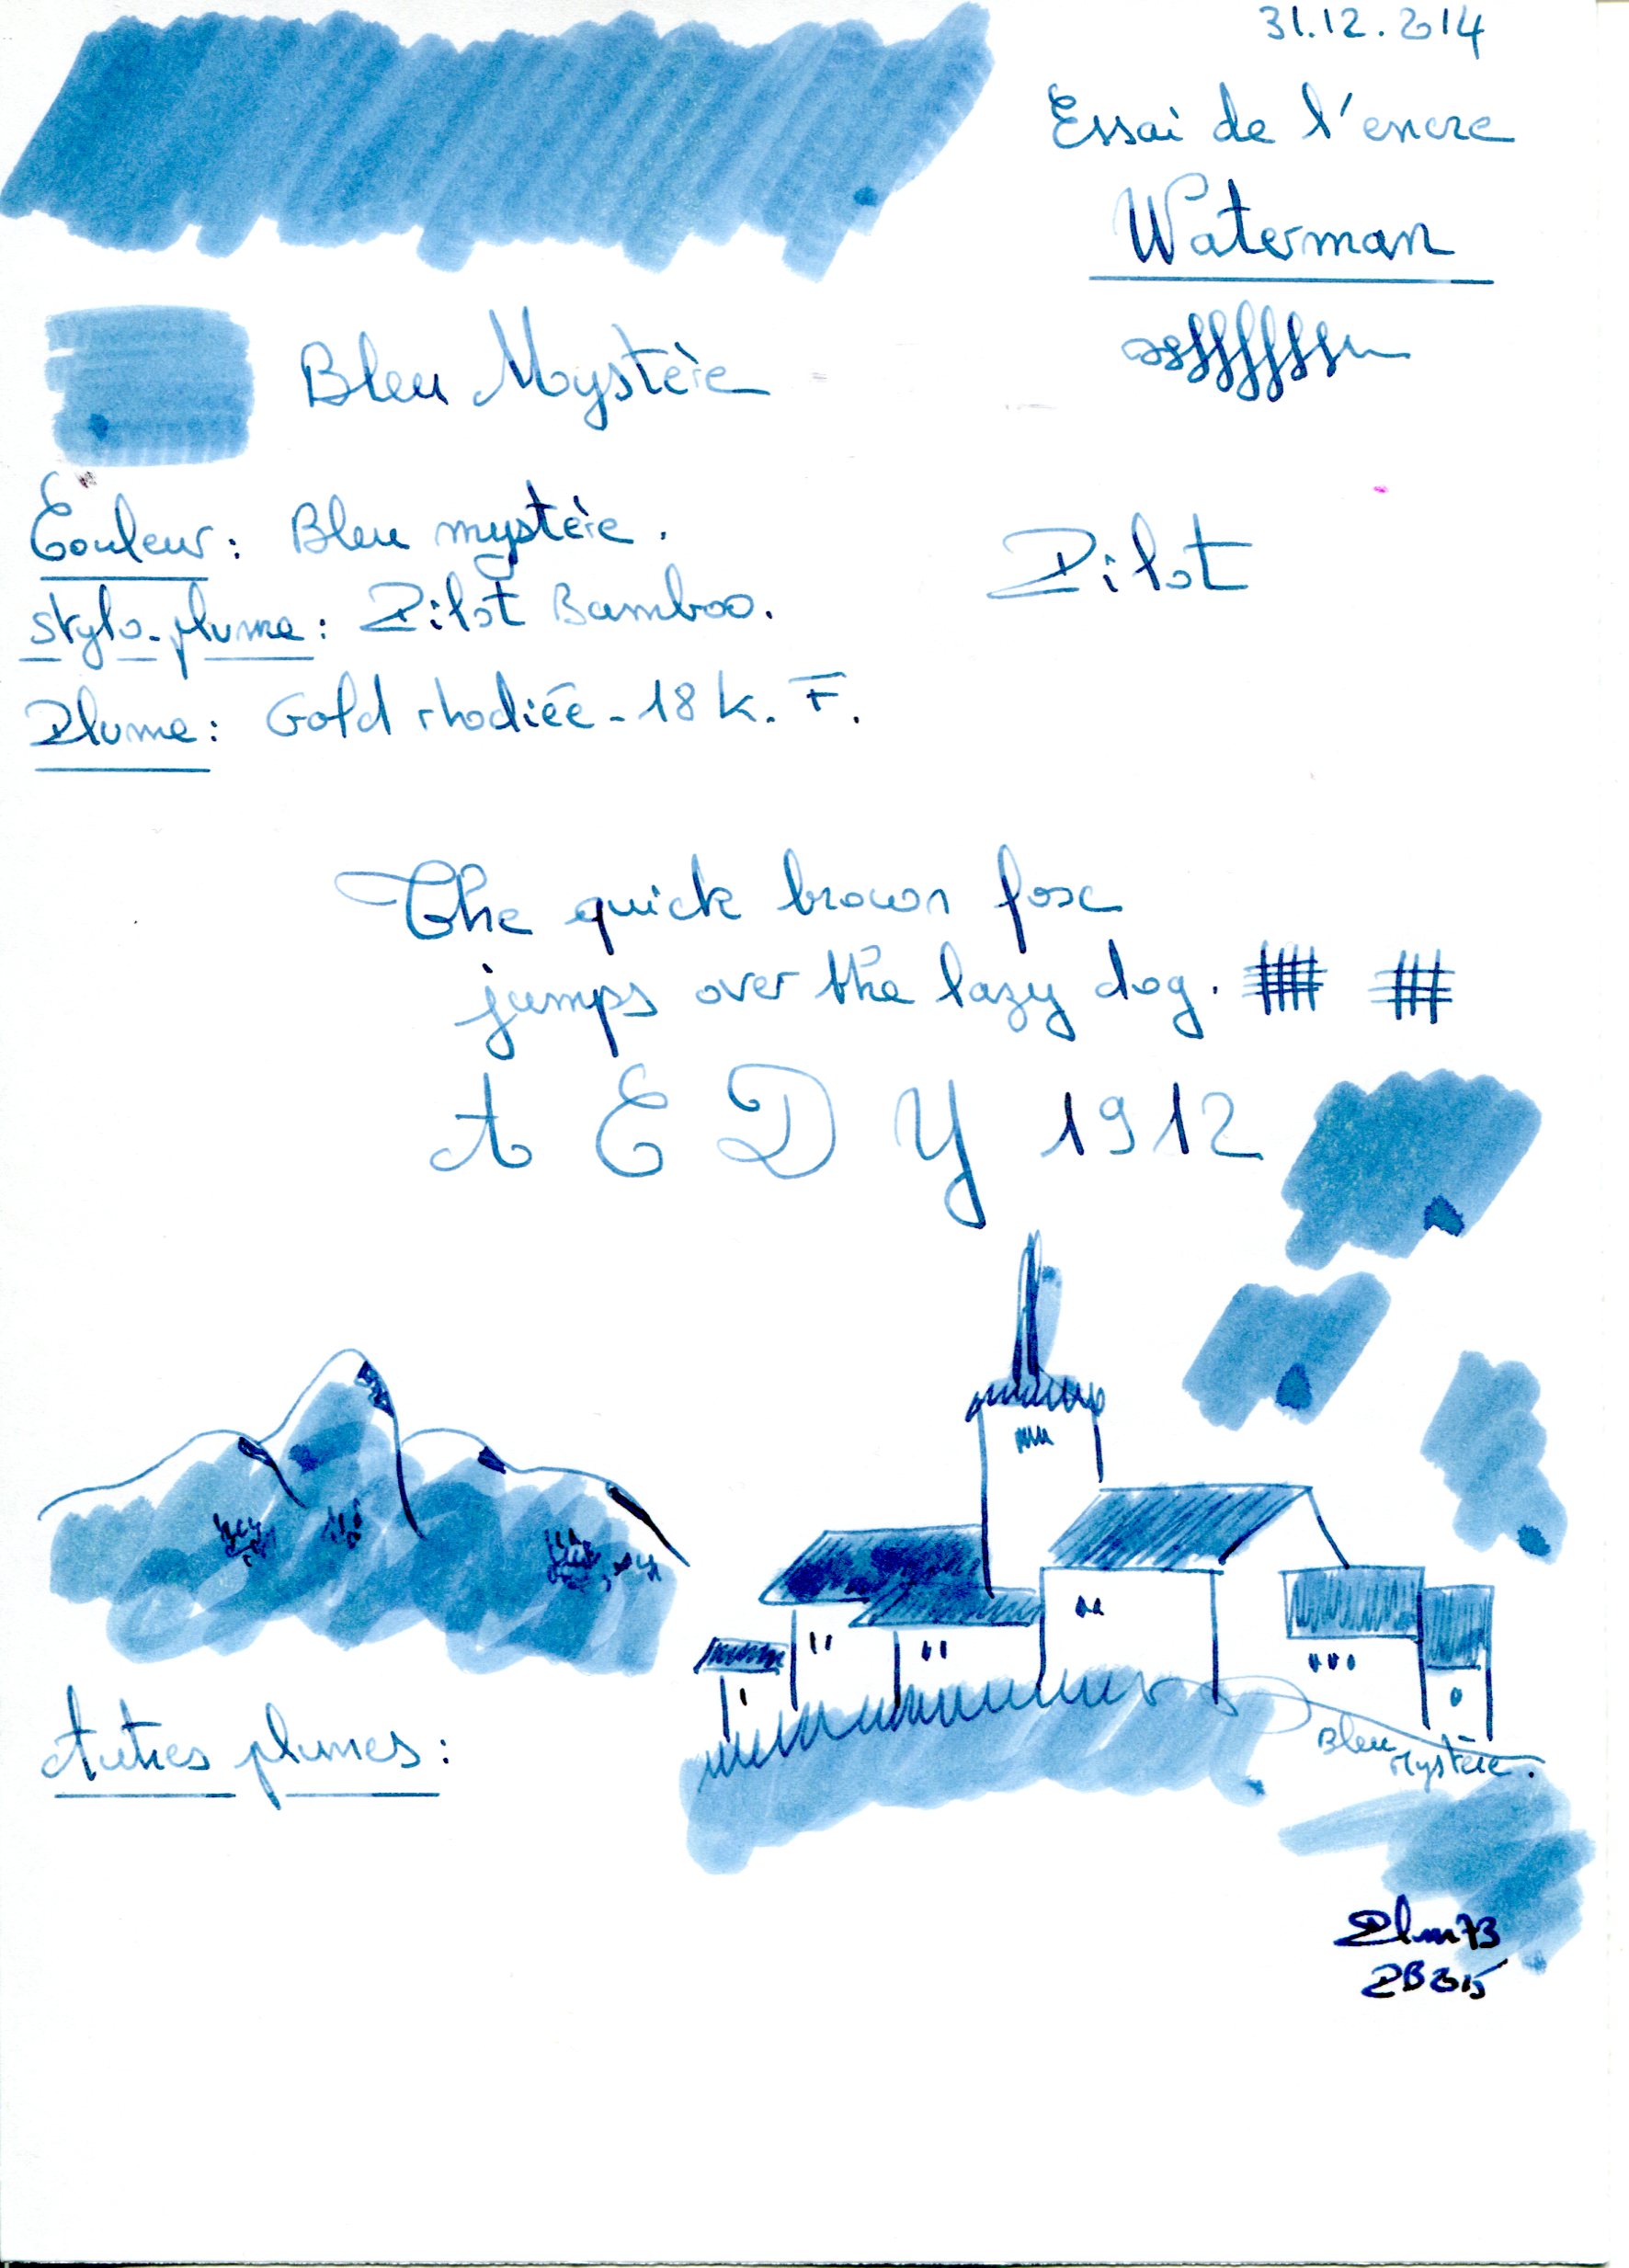 31.12.2014
Essai de l'encre
Waterman
Bleu Mystère
Couleur : Bleu mystère.
Pilot
stylo-plume : Pilot Bamboo.
Plume : Gold rhodiée - 18 k. F.
The quick brown fox
jumps over the lazy dog.
A E D Y 1912
Autres plumes :
Bleu
Mystère.
Plm73
PB 2015